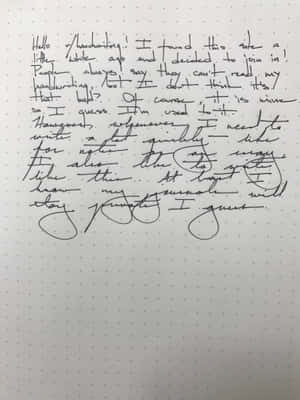 Hello r/handwriting! I found this sub a
little while ago and decided to join in!
People always say they can't read my
handwriting, but I don't think it's
that bad? Of course it is mine
so I guess I'm used to it.
However, whenever I need to
write a lot quickly - like
for notes or essays
I also like to write
like this. At least I
know my journals will
stay private I guess